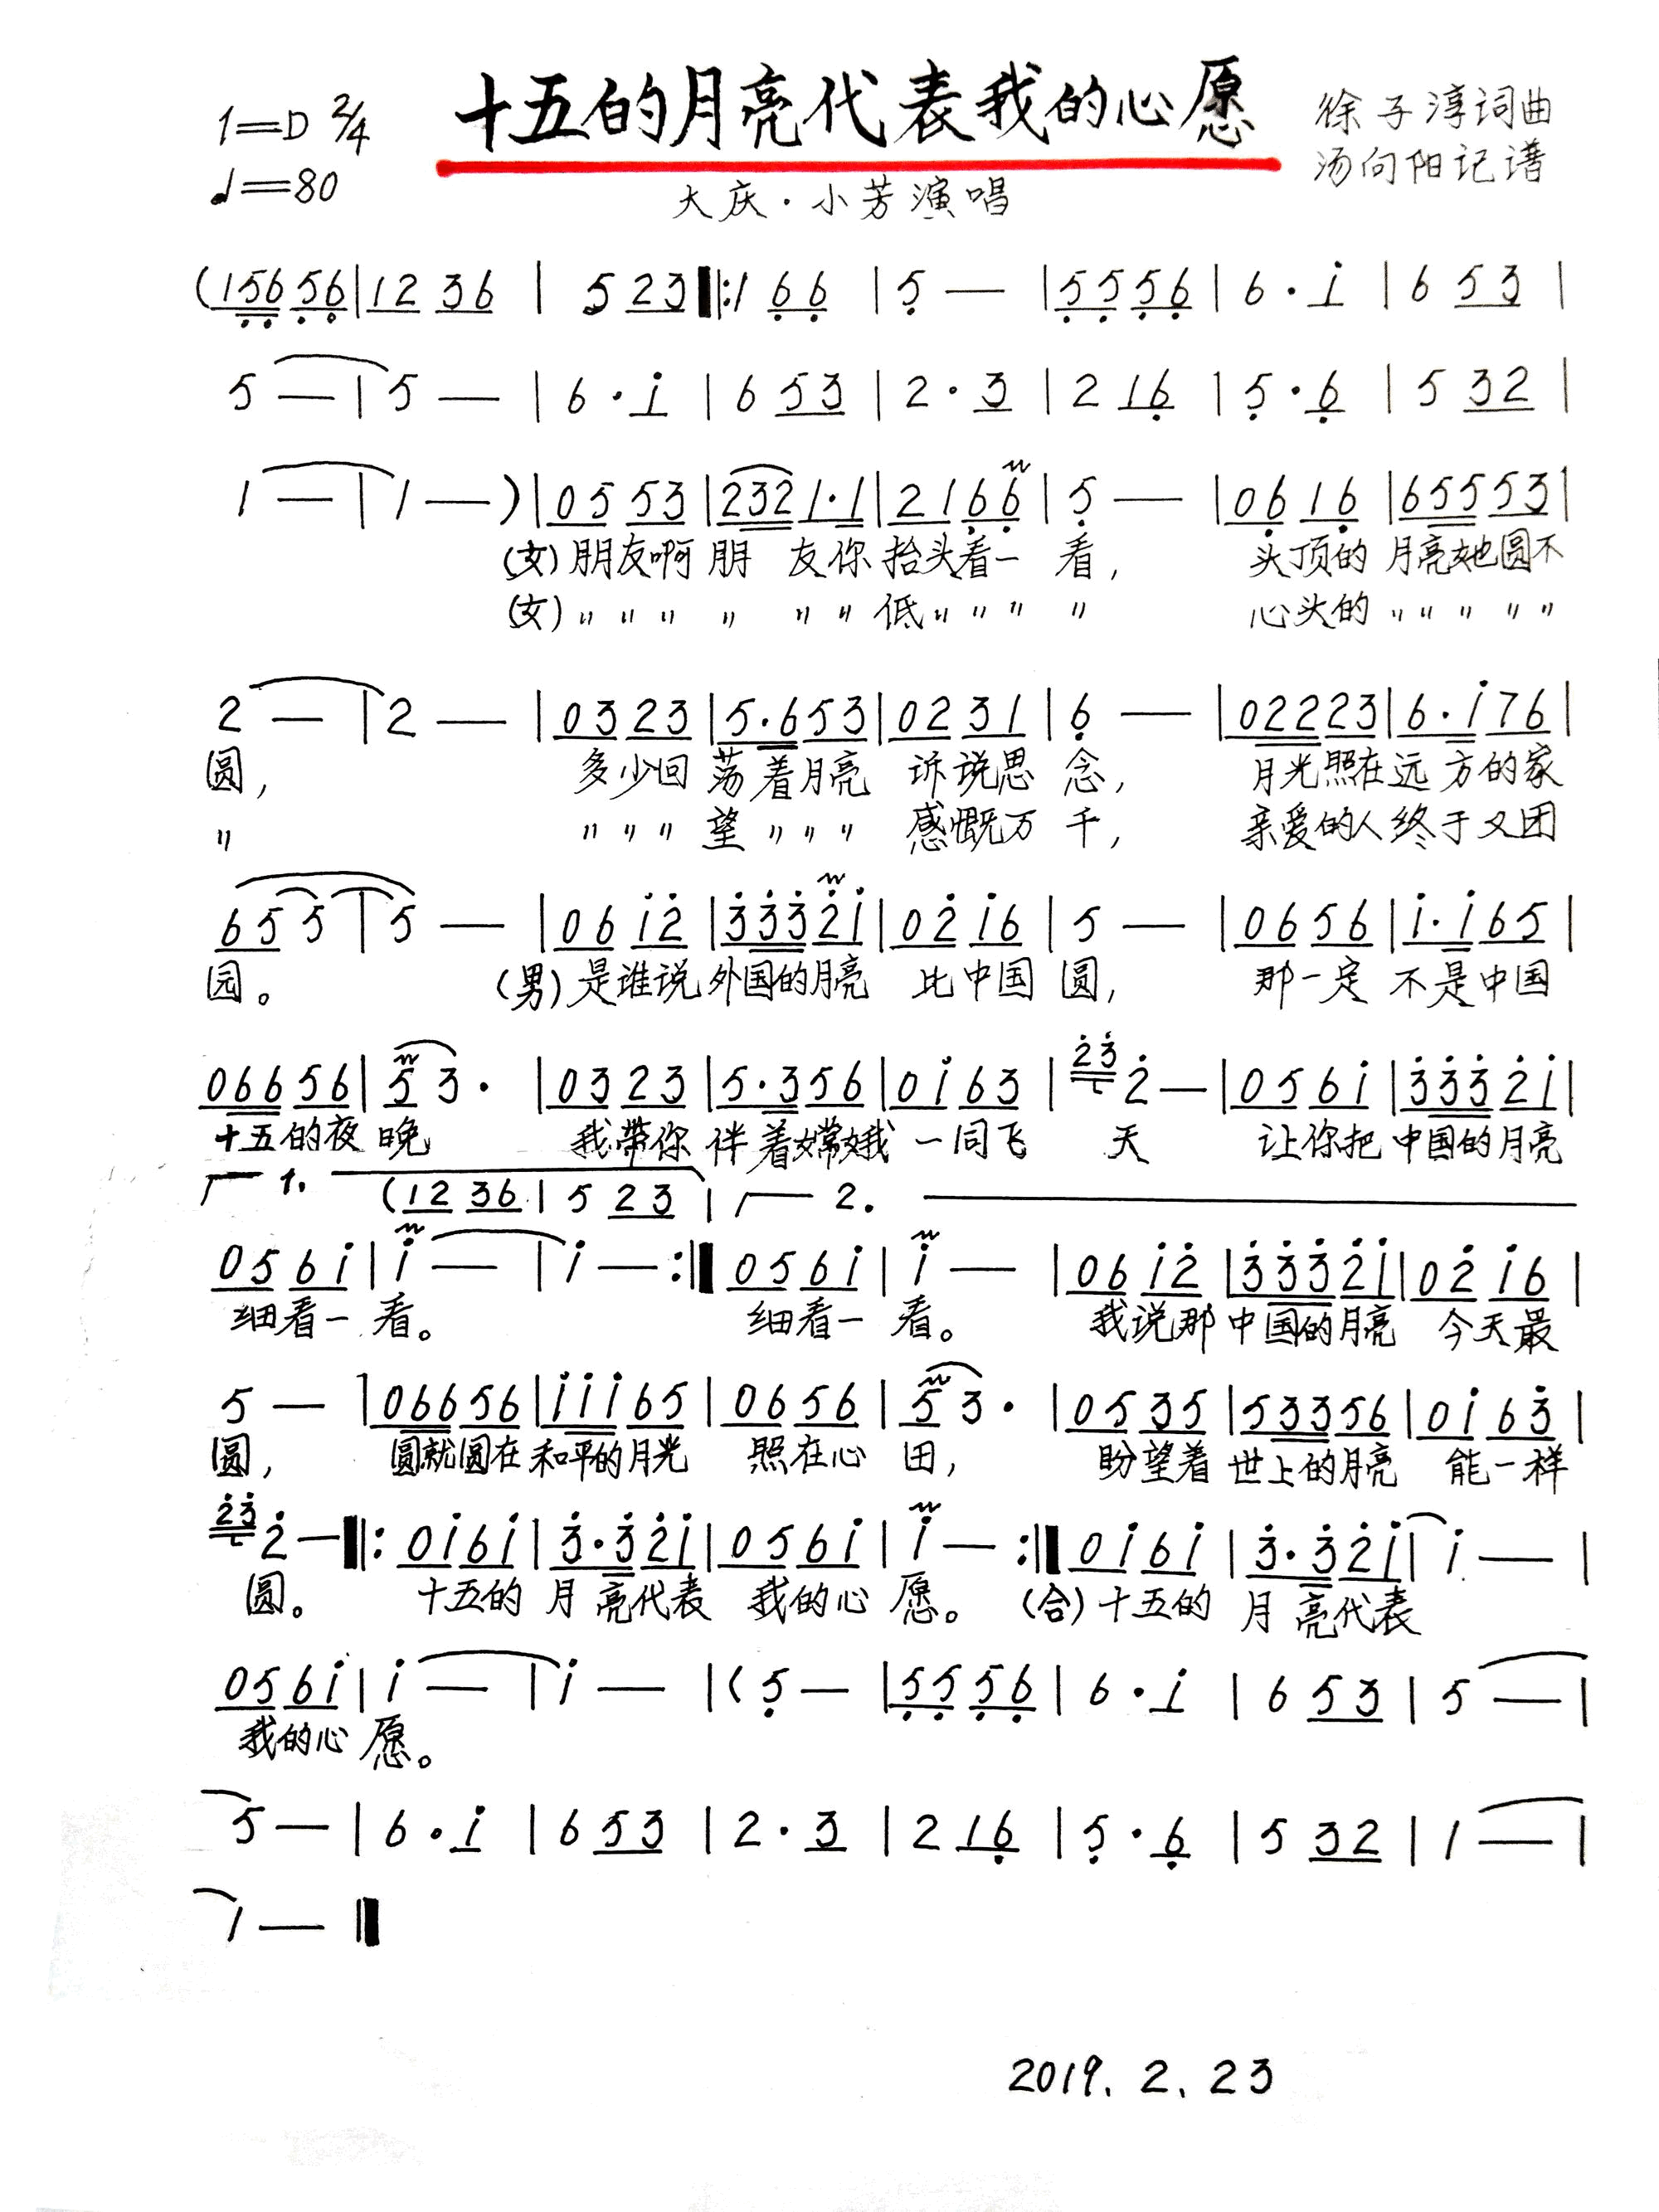 十五的月亮代表我的心愿
1=D 2/4
♩=80
徐子淳词曲
汤向阳记谱
大庆·小芳演唱
(156 56|12 36 | 5 23‖:1 66 |5 — |55 56|6·i |6 53 |
5 —|5 — |6·i |6 53 |2·3 |2 16 |5·6 |5 32 |
1 —|1 —)|05 53|232 1·1|21 66|5 — |06 16|655 53|
(女)朋友啊 朋 友你 抬头看一 看, 头顶的 月亮她圆不
(女)〃〃〃 〃 〃〃 低〃〃〃 〃 心头的 〃〃〃〃〃
2 —|2 — |03 23|5·6 53|02 31|6 — |022 23|6·i 76|
圆, 多少回 荡着月亮 诉说思 念, 月光照在远 方的家
〃 〃〃〃 望〃〃〃 感慨万 千, 亲爱的人终于又团
65 5|5 — |06 i2|333 2i|02 i6|5 — |06 56|i·i 65|
园。 (男)是谁说 外国的月亮 比中国 圆, 那一定 不是中国
066 56|5 3· |03 23|5·3 56|0i 63|23 2 —|05 6i|333 2i|
十五的夜 晚 我带你 伴着嫦娥 一同飞 天 让你把 中国的月亮
1. (12 36|5 23 | 2.
05 6i|i —|i —:‖05 6i|i — |06 i2|333 2i|02 i6|
细看一 看。 细看一 看。 我说那 中国的月亮 今天最
5 — |066 56|iii 65|06 56|5 3· |05 35|533 56|0i 63|
圆, 圆就圆在 和平的月光 照在心 田, 盼望着 世上的月亮 能一样
23 2 —‖:0i 6i|3·3 2i|05 6i|i — :‖0i 6i|3·3 2i|i — |
圆。 十五的 月 亮代表 我的心 愿。 (合)十五的 月 亮代表
05 6i|i —|i — |(5 — |55 56|6·i |6 53|5 —|
我的心 愿。
5 — |6·i |6 53 |2·3 |2 16 |5·6 |5 32|1 —|
1 — ‖
2019. 2. 23